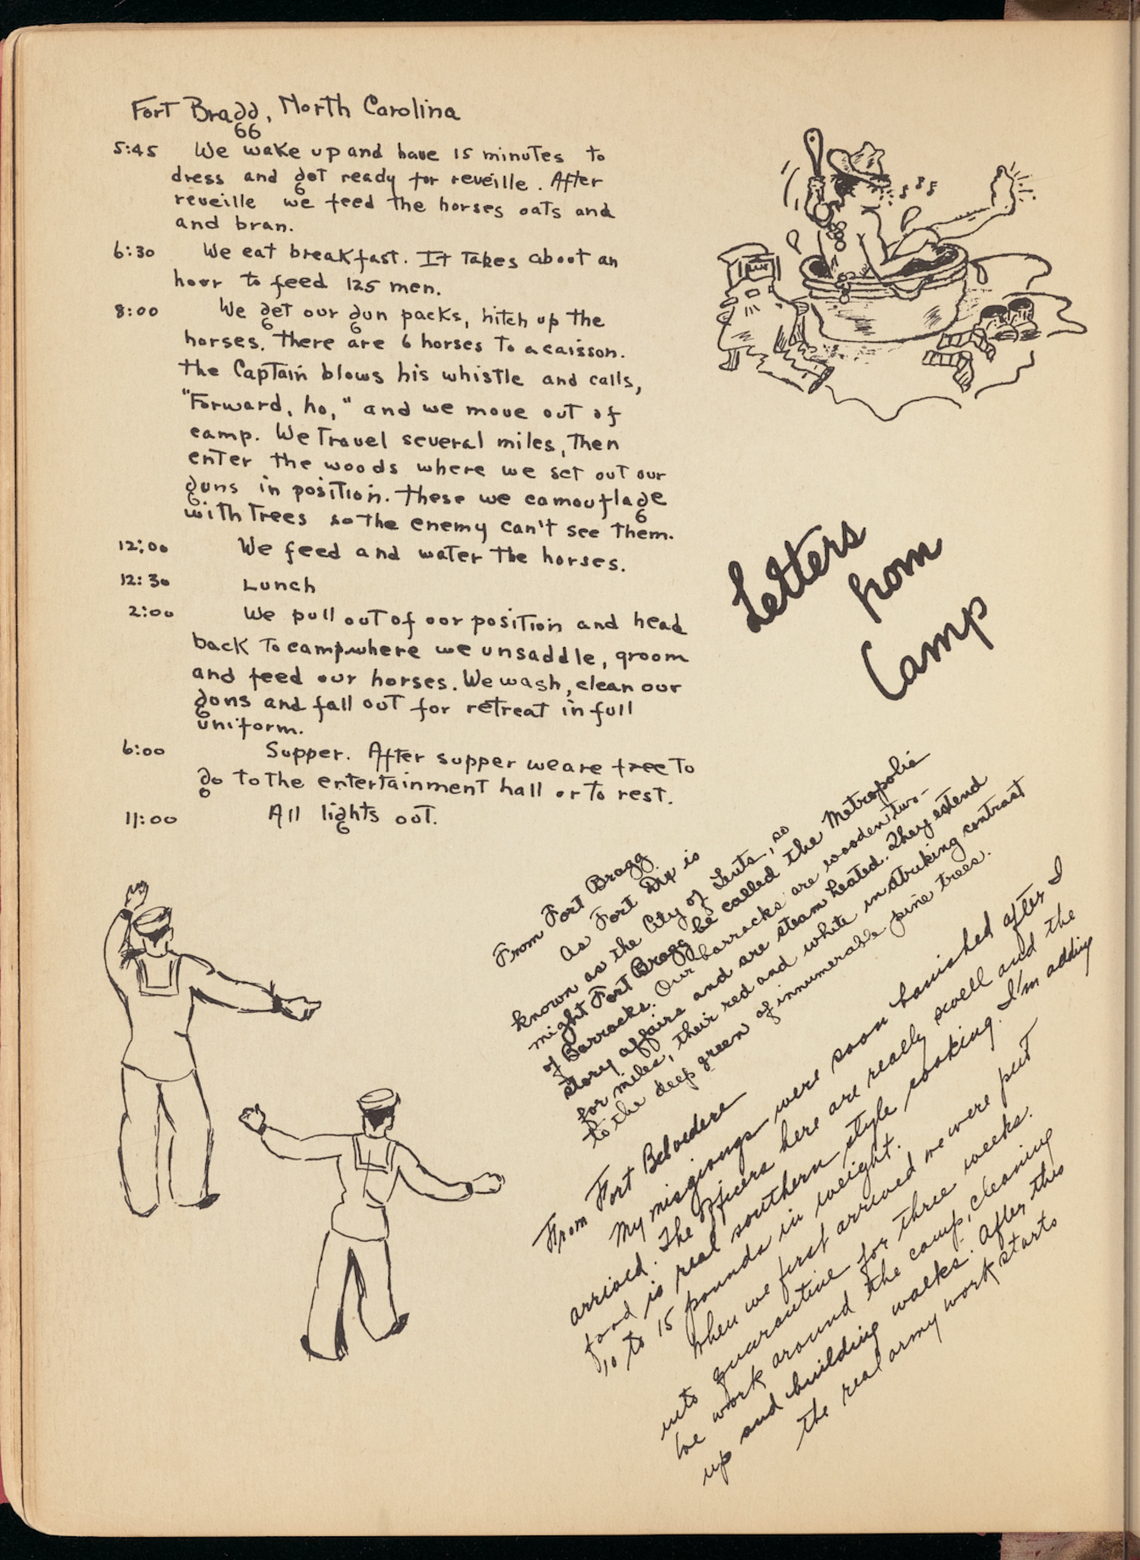 Fort Bragg, North Carolina
5:45 We wake up and have 15 minutes to
dress and get ready for reveille. After
reveille we feed the horses oats and
and bran.
6:30 We eat breakfast. It takes about an
hour to feed 125 men.
8:00 We get our gun packs, hitch up the
horses. There are 6 horses to a caisson.
The Captain blows his whistle and calls,
"Forward, ho," and we move out of
camp. We travel several miles, then
enter the woods where we set out our
guns in position. These we camouflage
with trees so the enemy can't see them.
12:00 We feed and water the horses.
12:30 Lunch
2:00 We pull out of our position and head
back to camp where we unsaddle, groom
and feed our horses. We wash, clean our
guns and fall out for retreat in full
uniform.
6:00 Supper. After supper we are free to
go to the entertainment hall or to rest.
11:00 All lights out.
Letters
from
Camp
From Fort Bragg
As Fort Dix is
known as the City of Tents, so
might Fort Bragg be called the Metropolis
of Barracks. Our barracks are wooden two-
story affairs and are steam heated. They extend
for miles, their red and white in striking contrast
to the deep green of innumerable pine trees.
From Fort Belvedere
My misgivings were soon banished after I
arrived. The officers here are really swell and the
food is real southern style cooking. I'm adding
10 to 15 pounds in weight.
When we first arrived we were put
into quarantine for three weeks.
We work around the camp, cleaning
up and building walks. After this
the real army work starts